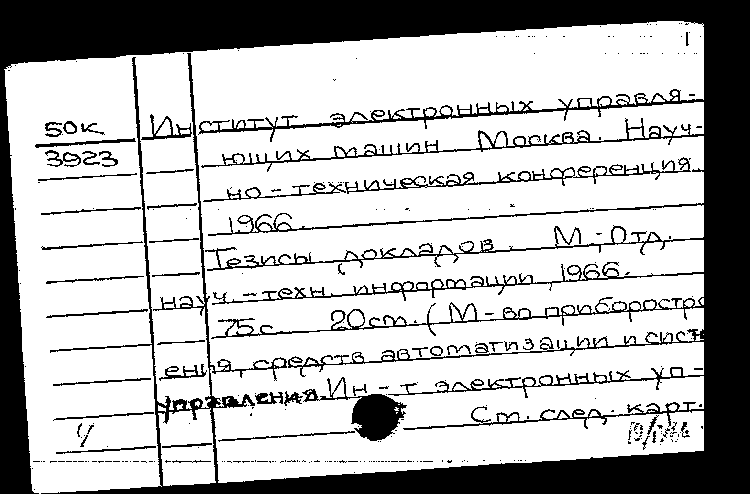 1
50к Институт электронных управля-
3923 ющих машин Москва. Науч-
но-техническая конференция.
1966.
Тезисы докладов. М., Отд.
науч.-техн. информации, 1966.
75 с. 20 см. (М-во приборостро
ения, средств автоматизации и систе
управления. Ин-т электронных уп-
Ст. след. карт.